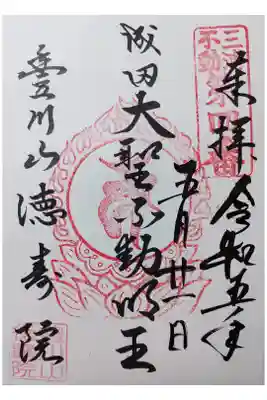 奉拝 令和五年
五月 日
成田大聖不動明王
川山 徳寿院
三
不動